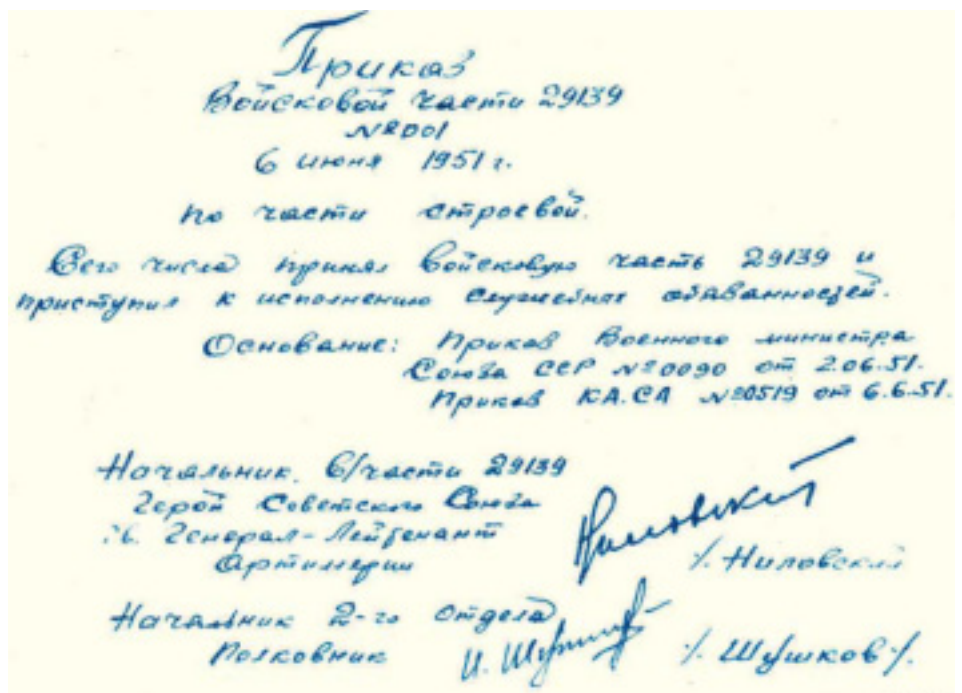 Приказ
Войсковой части 29139
№ 001
6 июня 1951 г.
по части строевой.
Сего числа принял войсковую часть 29139 и
приступил к исполнению служебных обязанностей.
Основание: Приказ Военного министра
Союза ССР №0090 от 2.06.51.
Приказ КА.СА №0519 от 6.6.51.
Начальник в/части 29139
Герой Советского Союза
Гв. Генерал-Лейтенант
Артиллерии
Ниловский
/. Ниловский
Начальник 2-го отдела
Полковник
/. Шушков /.